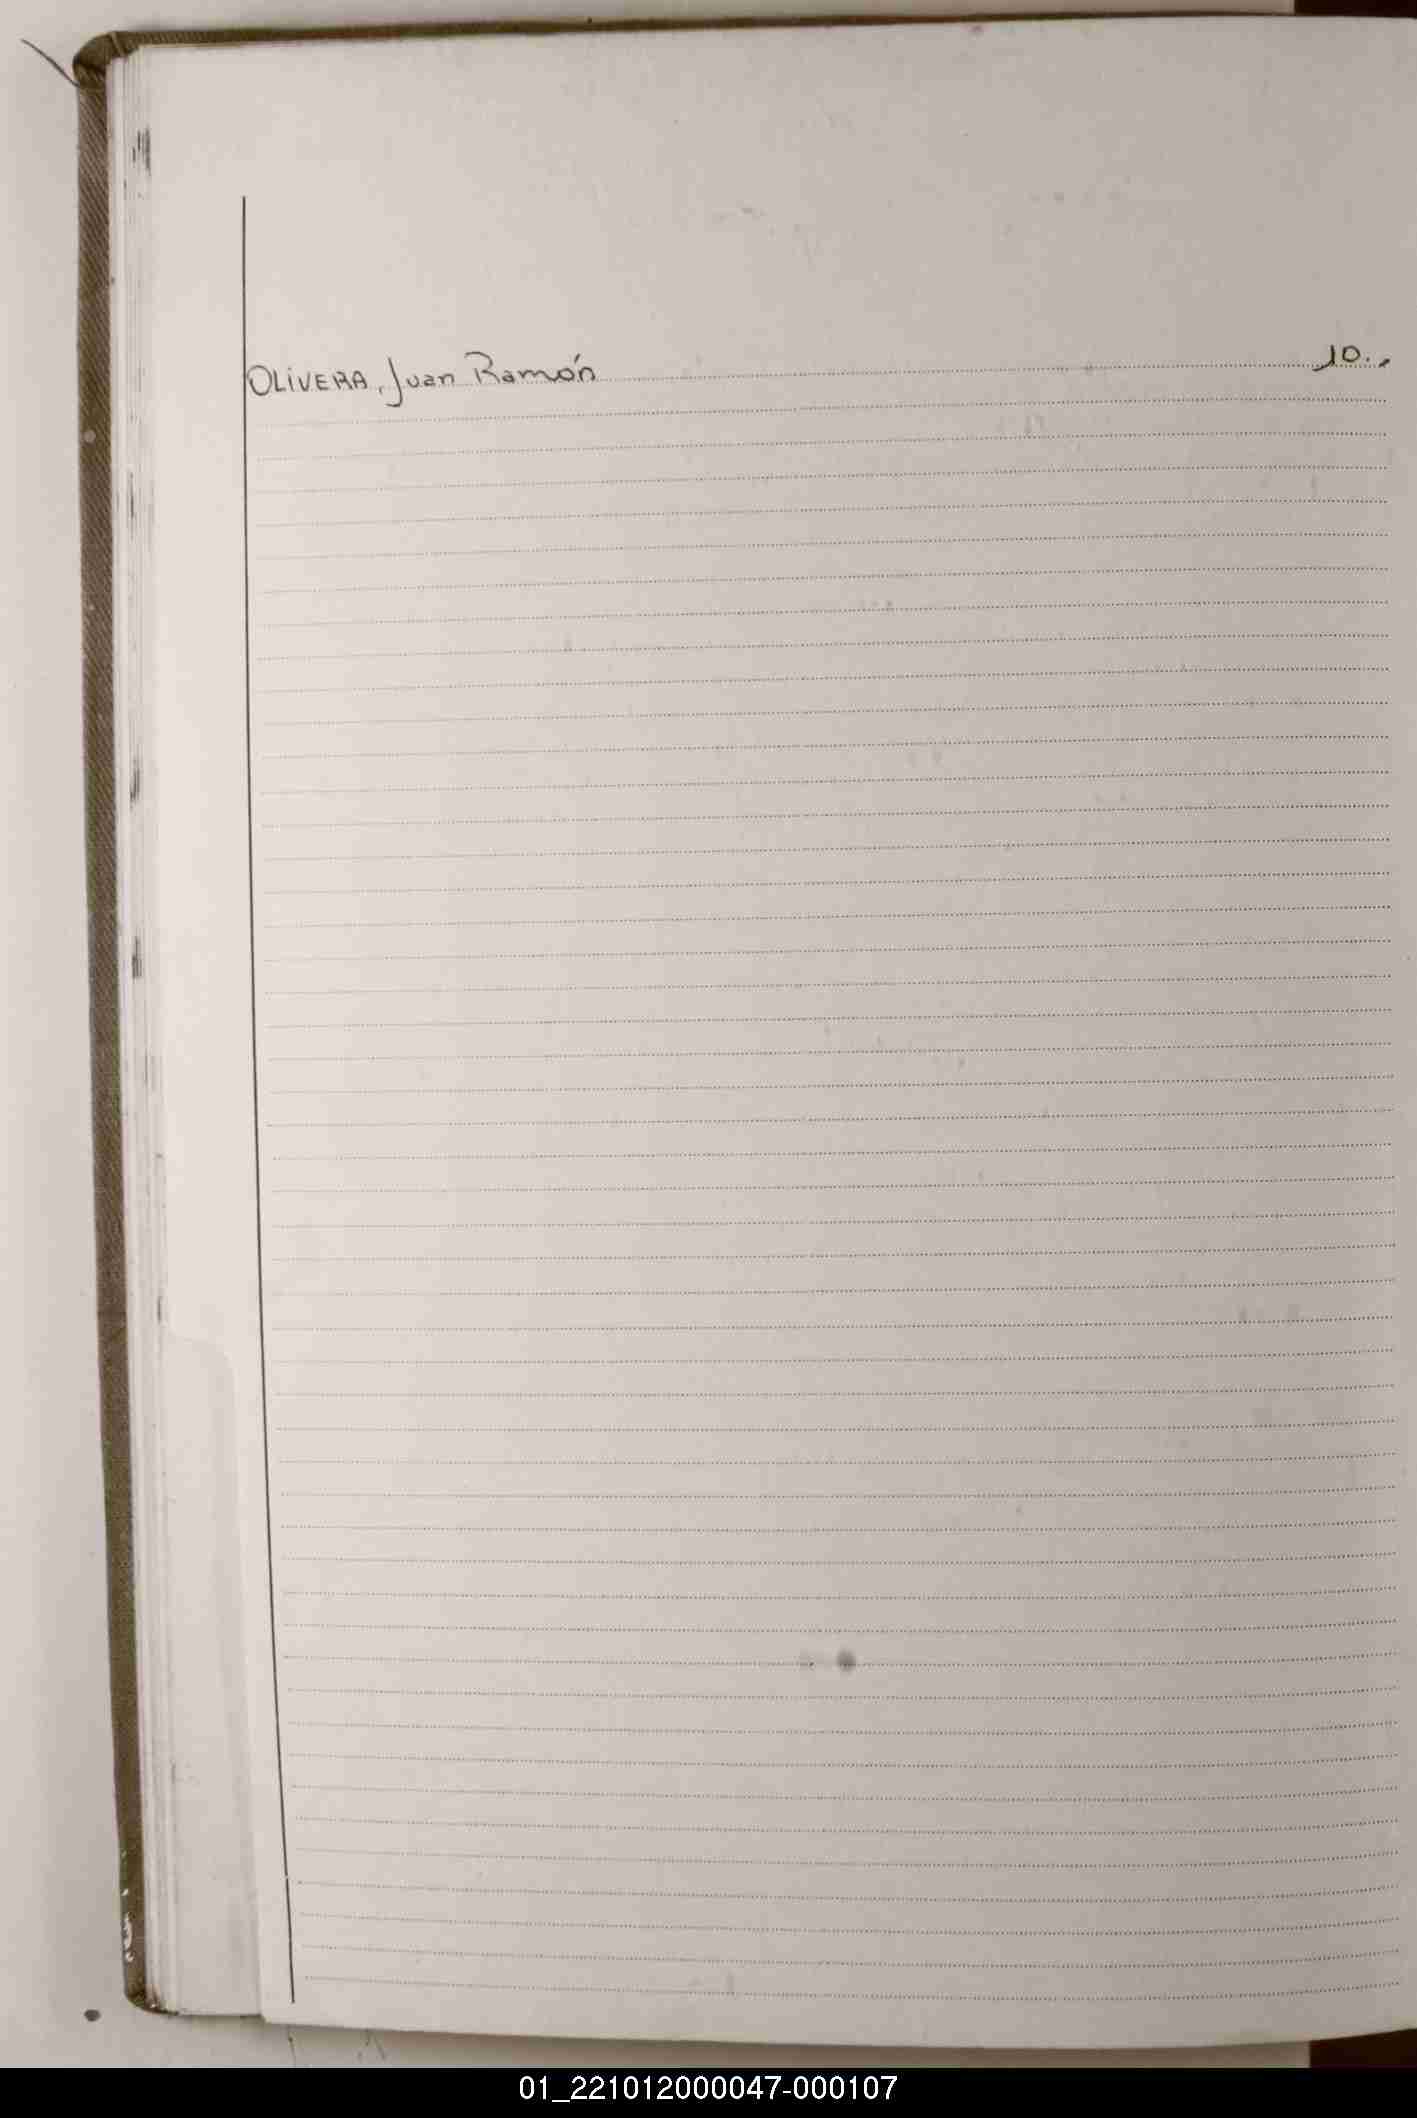 OLIVERA, Juan Ramón 10.,
01_221012000047-000107